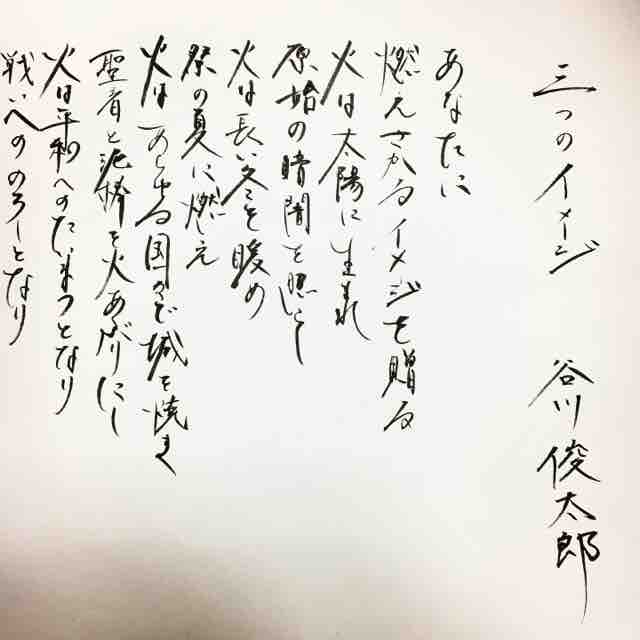 三つのイメージ　谷川俊太郎
あなたに
燃えさかるイメージを贈る
火は太陽に生まれ
原始の暗闇を照らし
火は長い冬を暖め
祭の夏に燃え
火はあらゆる国々で城を焼き
聖者と泥棒を火あぶりにし
火は平和へのたいまつとなり
戦いへののろしとなり